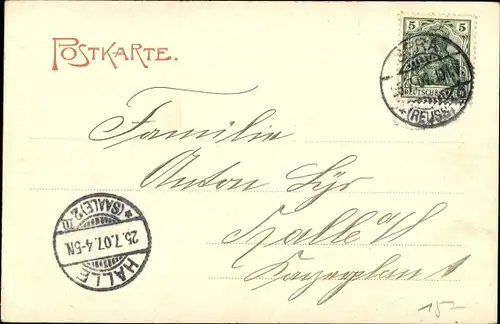 POSTKARTE.
5 5
DEUTSCHES REICH
GERA
*(REUSS)*
Familie
Anton Syr
Halle a/S
HALLE
25.7.07.4-5N.
*(SAALE)*2
15-